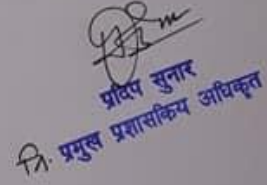 प्रदिप सुनार
नि. प्रमुख प्रशासकिय अधिकृत